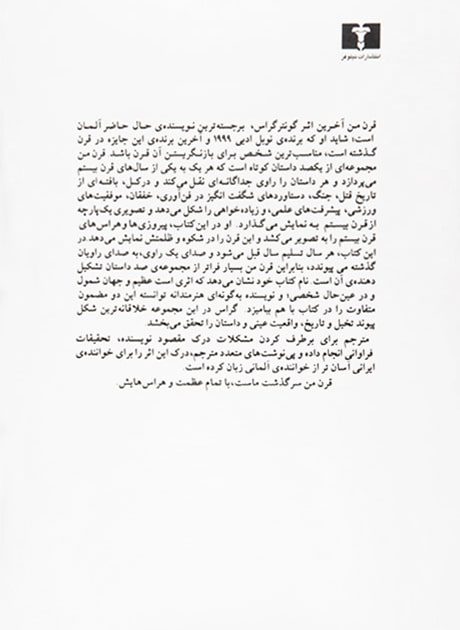 انتشارات نیلوفر
قرن من آخرین اثر گونترگراس، برجسته‌ترین نویسنده‌ی حال حاضر آلمان
است؛ شاید او که برنده‌ی نوبل ادبی ۱۹۹۹ و آخرین برنده‌ی این جایزه در قرن
گذشته است، مناسب‌ترین شخص برای بازنگریستن آن قرن باشد. قرن من
مجموعه‌ای از یکصد داستان کوتاه است که هر یک به یکی از سال‌های قرن بیستم
می‌پردازد و هر داستان را راوی جداگانه‌ای نقل می‌کند و درکل، بافته‌ای از
تاریخ قتل، جنگ، دستاوردهای شگفت انگیز در فن‌آوری، خفقان، موفقیت‌های
ورزشی، پیشرفت‌های علمی، و زیاده‌خواهی را شکل می‌دهد و تصویری یک‌پارچه
از قرن بیستم به نمایش می‌گذارد. او در این کتاب، پیروزی‌ها و هراس‌های
قرن بیستم را به تصویر می‌کشد و این قرن را در شکوه و ظلمتش نمایش می‌دهد در
این کتاب، هر سال تسلیم سال قبل می‌شود و صدای یک راوی، به صدای راویان
گذشته می پیوندد، بنابراین قرن من بسیار فراتر از مجموعه‌ی صد داستان تشکیل
دهنده‌ی آن است. نام کتاب خود نشان می‌دهد که اثری است عظیم و جهان شمول
و در عین‌حال شخصی؛ و نویسنده به‌گونه‌ای هنرمندانه توانسته این دو مضمون
متفاوت را در کتاب با هم بیامیزد. گراس در این مجموعه خلاقانه‌ترین شکل
پیوند تخیل و تاریخ، واقعیت عینی و داستان را تحقق می‌بخشد.
مترجم برای برطرف کردن مشکلات درک مقصود نویسنده، تحقیقات
فراوانی انجام داده و پی‌نوشت‌های متعدد مترجم، درک این اثر را برای خواننده‌ی
ایرانی آسان تر از خواننده‌ی آلمانی زبان کرده است.
قرن من سرگذشت ماست، با تمام عظمت و هراس‌هایش.